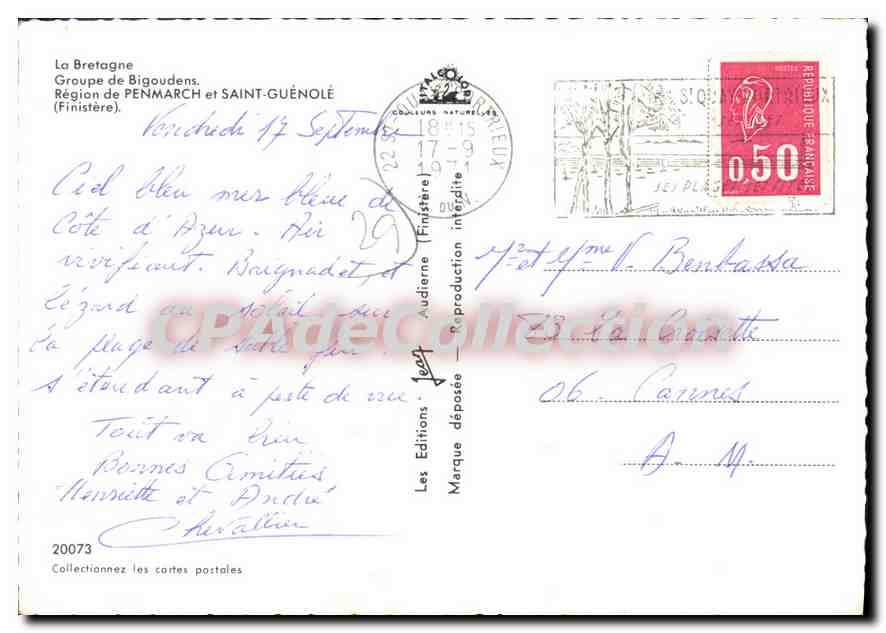 La Bretagne
Groupe de Bigoudens.
Région de PENMARCH et SAINT-GUÉNOLÉ
(Finistère).
Vendredi 17 Septembre
Ciel bleu mer bleue de
Côte d'Azur. Air
vivifiant. Baignades, et
lézard au soleil sur
la plage de sable fin
s'étendant à perte de vue.
Tout va bien
Bonnes Amitiés
Henriette et André
Chevallier
20073
Collectionnez les cartes postales
COULEURS NATURELLES
Les Editions Jean Audierne (Finistère)
Marque déposée — Reproduction interdite
22 ST-QUAY-PORTRIEUX
18H15
17-9
ST QUAY PORTRIEUX
SES PLAGES
POSTES
RÉPUBLIQUE FRANÇAISE
0,50
Mr et Mme V. Benbassa
73 La Croisette
06. Cannes
A. M.
CPAdeCollection